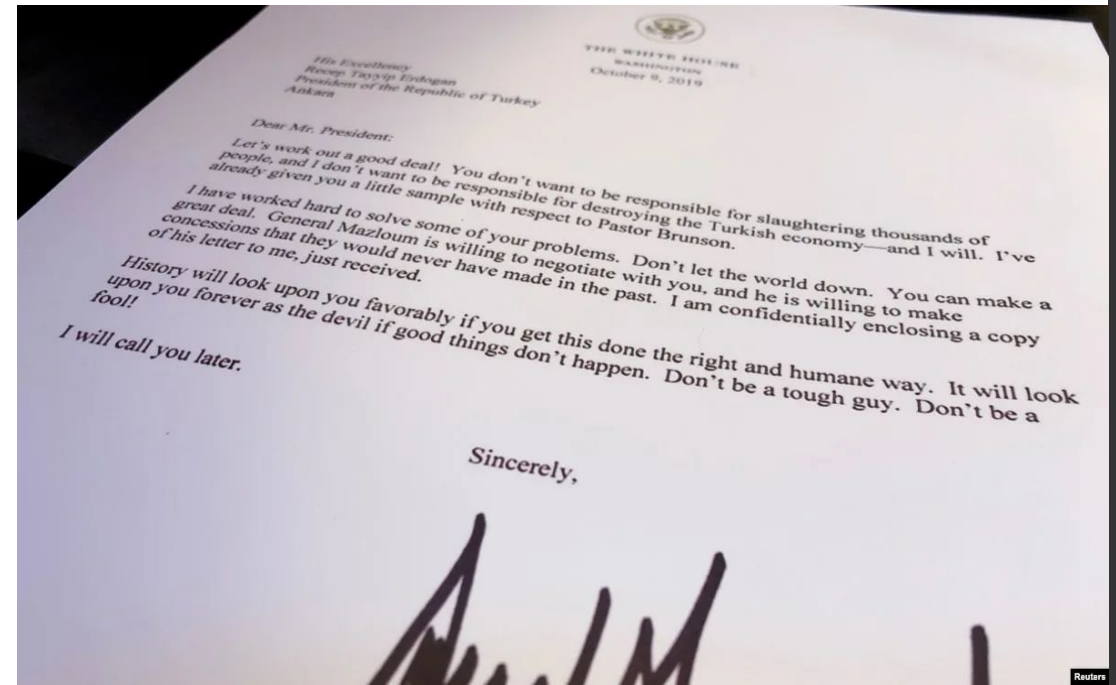 THE WHITE HOUSE
WASHINGTON
October 9, 2019
His Excellency
Recep Tayyip Erdogan
President of the Republic of Turkey
Ankara
Dear Mr. President:
Let's work out a good deal!  You don't want to be responsible for slaughtering thousands of
people, and I don't want to be responsible for destroying the Turkish economy—and I will.  I've
already given you a little sample with respect to Pastor Brunson.
I have worked hard to solve some of your problems.  Don't let the world down.  You can make a
great deal.  General Mazloum is willing to negotiate with you, and he is willing to make
concessions that they would never have made in the past.  I am confidentially enclosing a copy
of his letter to me, just received.
History will look upon you favorably if you get this done the right and humane way.  It will look
upon you forever as the devil if good things don't happen.  Don't be a tough guy.  Don't be a
fool!
I will call you later.
Sincerely,
Reuters